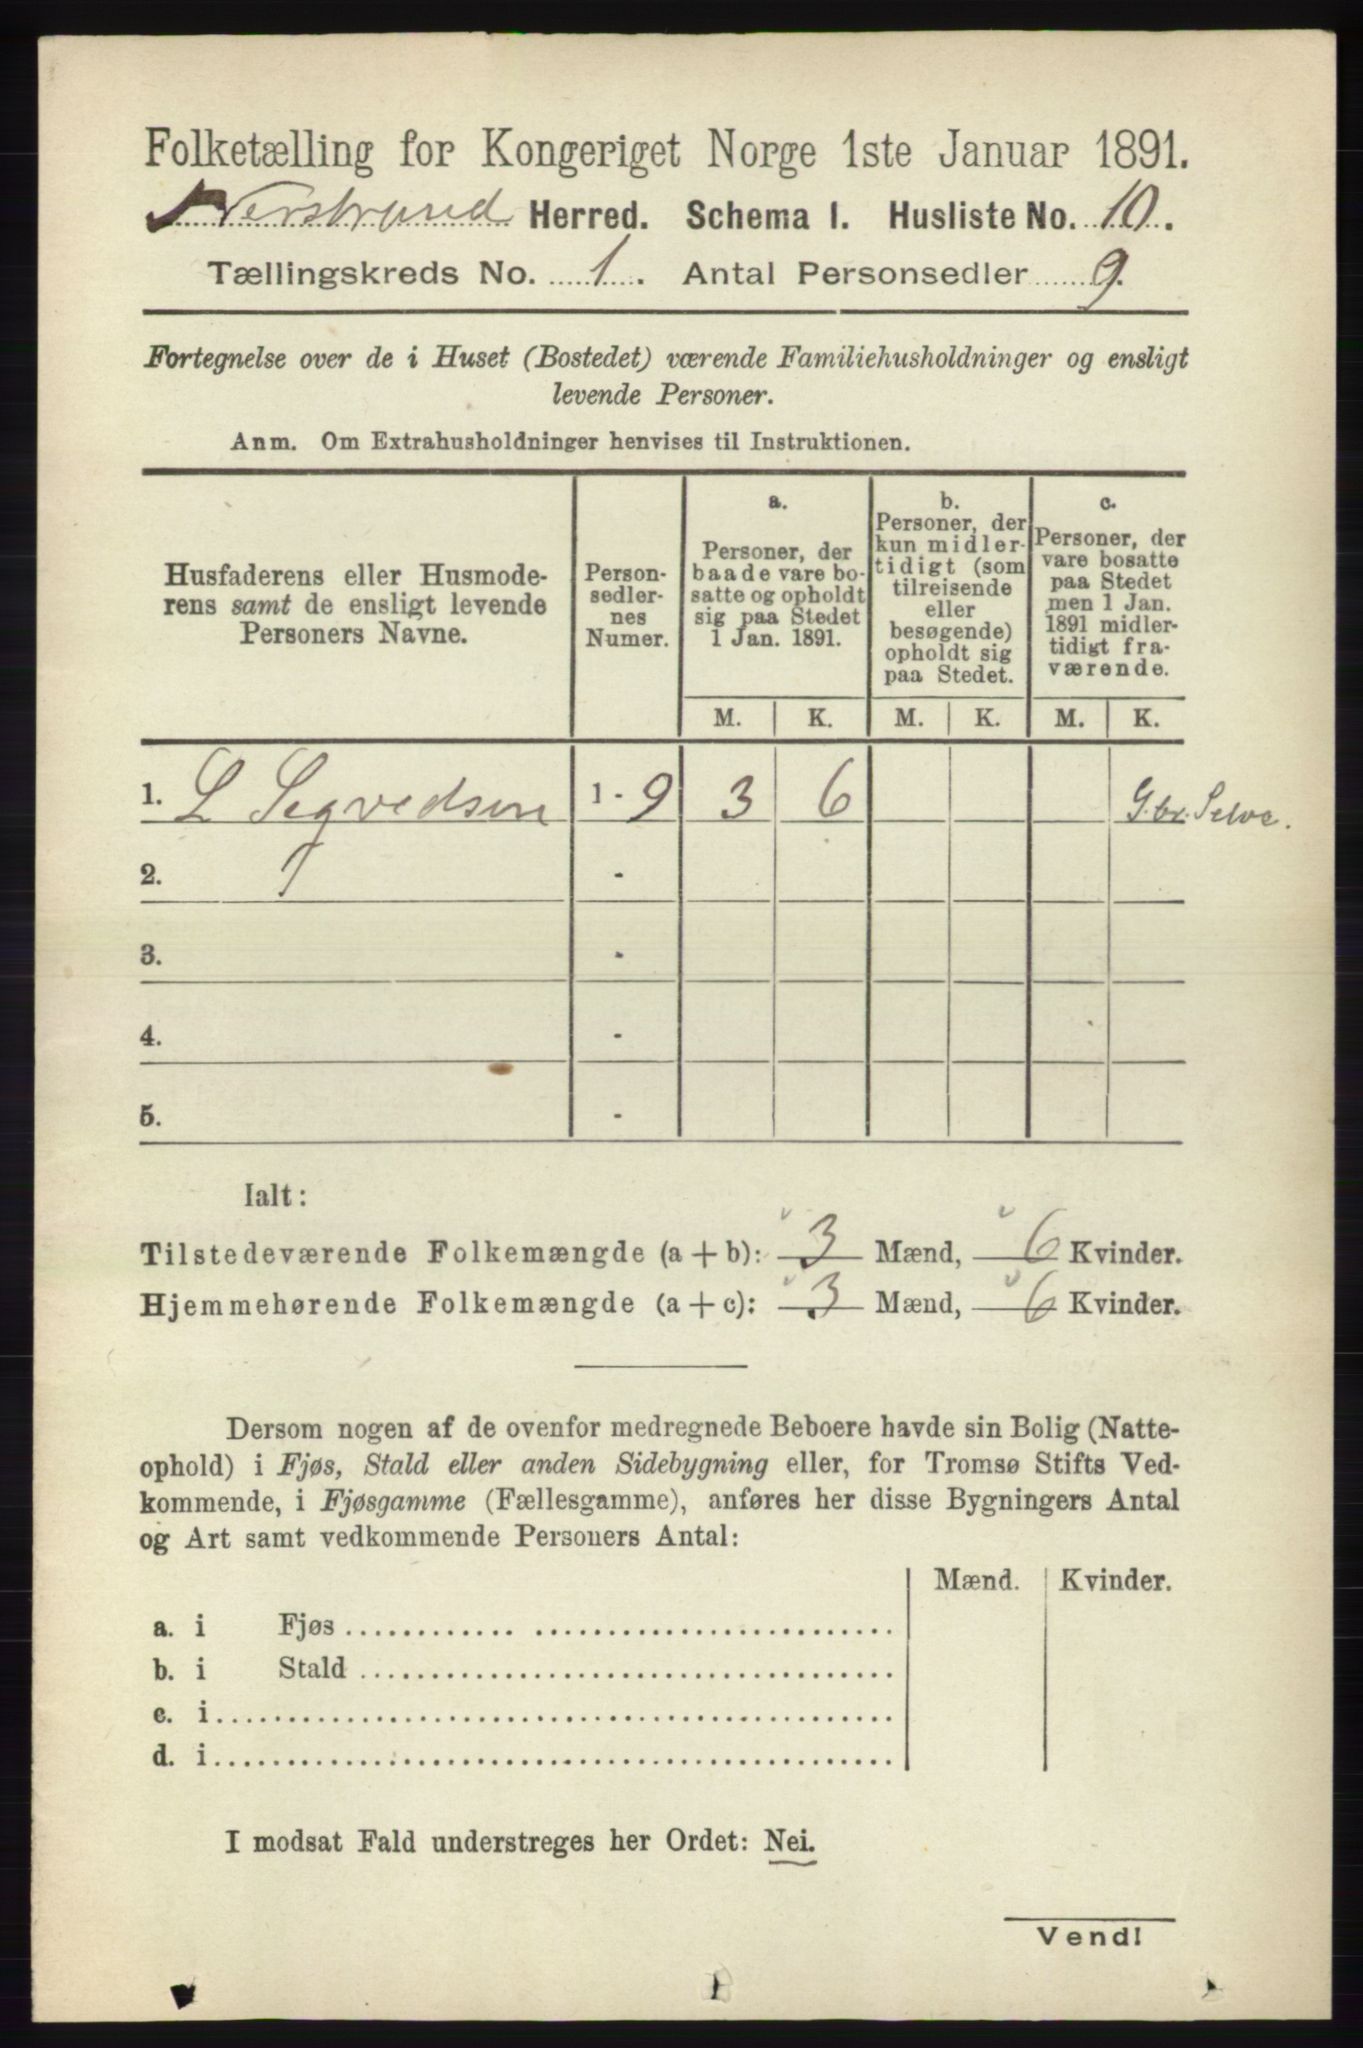 Folketælling for Kongeriget Norge 1ste Januar 1891.
Nerstrand Herred. Schema I. Husliste No. 10.
Tællingskreds No. 1. Antal Personsedler 9.
Fortegnelse over de i Huset (Bostedet) værende Familiehusholdninger og ensligt
levende Personer.
Anm. Om Extrahusholdninger henvises til Instruktionen.
Husfaderens eller Husmode-
rens samt de ensligt levende
Personers Navne.
Person-
sedler-
nes
Numer.
a.
Personer, der
baade vare bo-
satte og opholdt
sig paa Stedet
1 Jan. 1891.
b.
Personer, der
kun midler-
tidigt (som
tilreisende
eller
besøgende)
opholdt sig
paa Stedet.
c.
Personer, der
vare bosatte
paa Stedet
men 1 Jan.
1891 midler-
tidigt fra-
værende.
M. K. M. K. M. K.
1. L Segvedsen 1 - 9 3 6 G.br. Selve.
2. -
3. -
4. -
5. -
Ialt:
Tilstedeværende Folkemængde (a + b): 3 Mænd, 6 Kvinder.
Hjemmehørende Folkemængde (a + c): 3 Mænd, 6 Kvinder.
Dersom nogen af de ovenfor medregnede Beboere havde sin Bolig (Natte-
ophold) i Fjøs, Stald eller anden Sidebygning eller, for Tromsø Stifts Ved-
kommende, i Fjøsgamme (Fællesgamme), anføres her disse Bygningers Antal
og Art samt vedkommende Personers Antal:
Mænd. Kvinder.
a. i Fjøs
b. i Stald
c. i
d. i
I modsat Fald understreges her Ordet: Nei.
Vend!